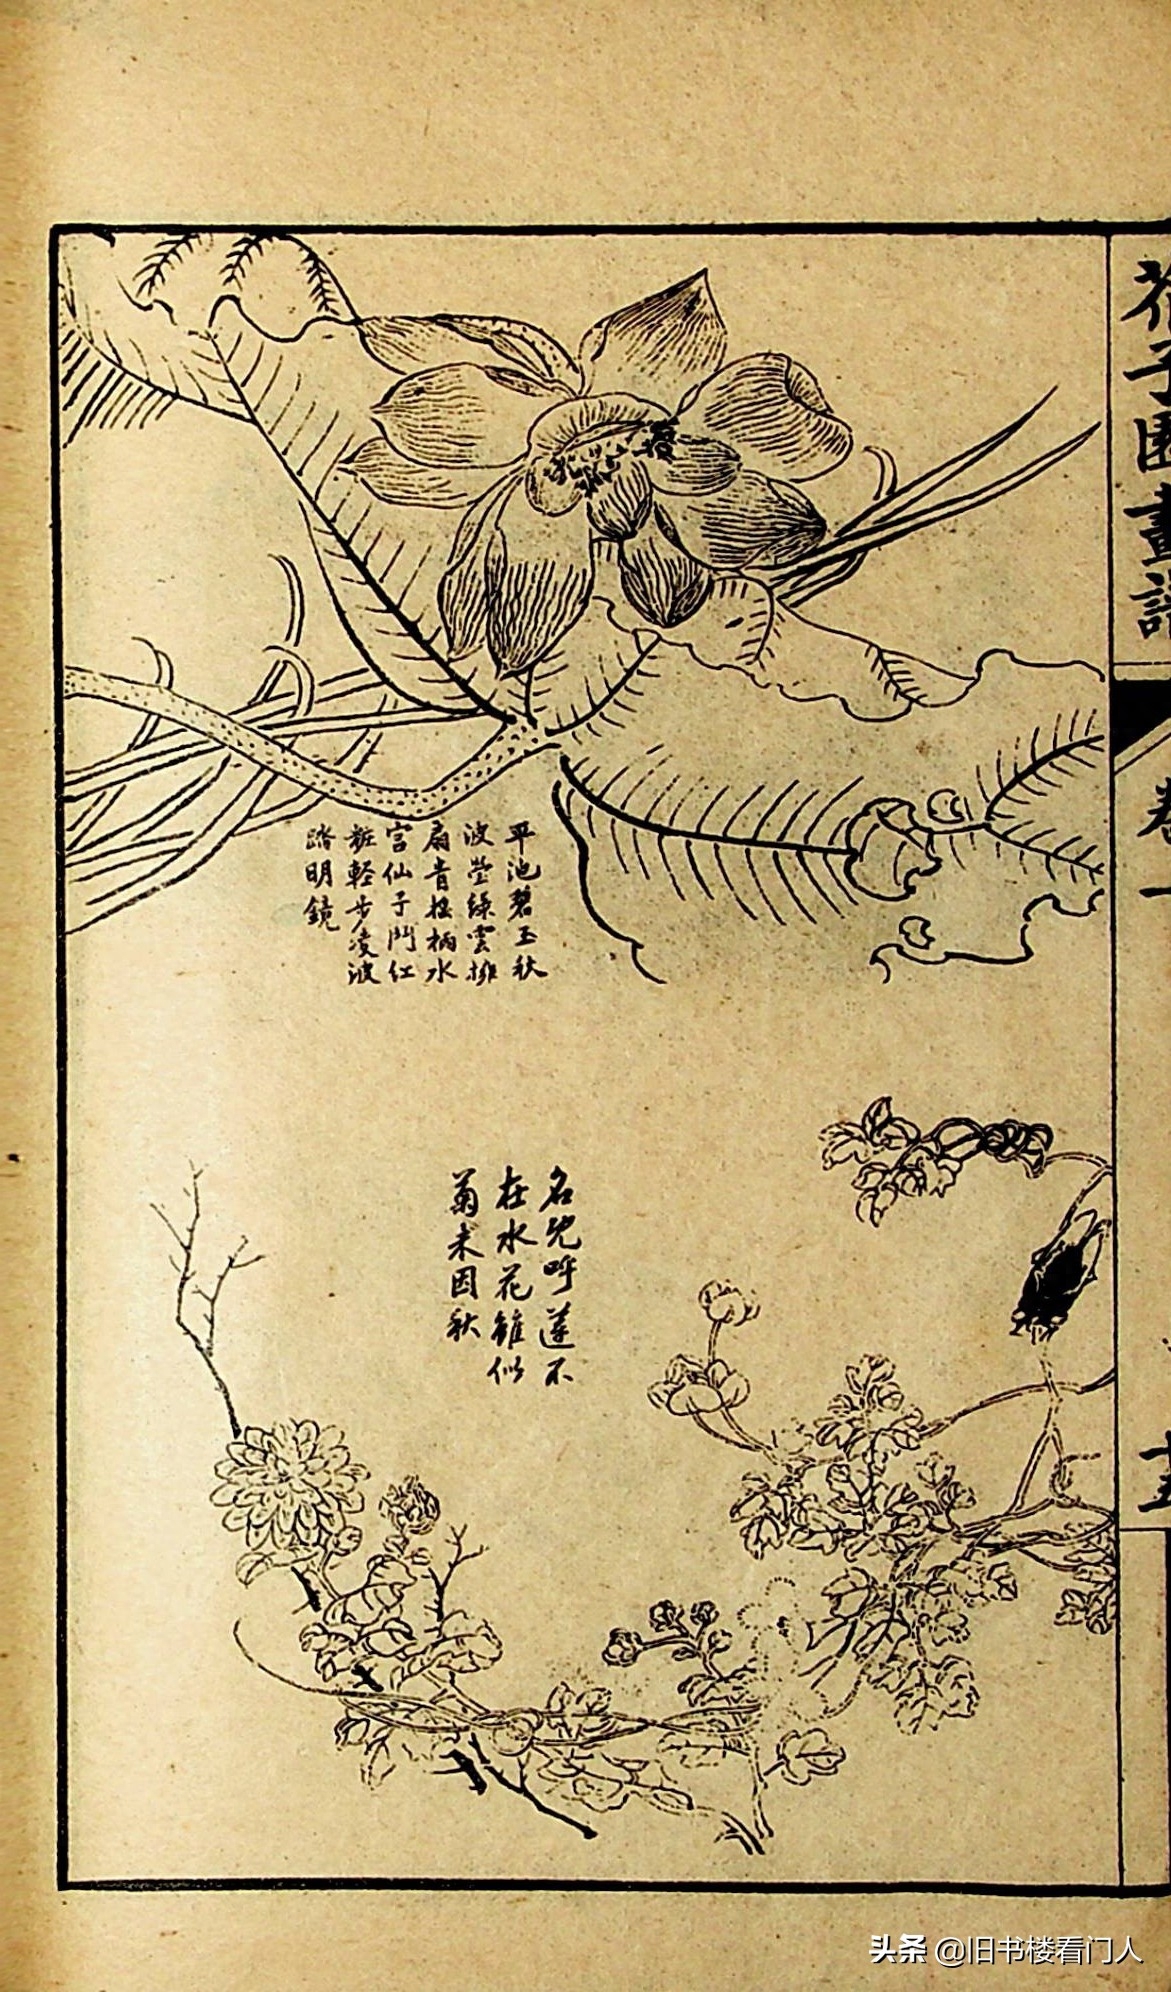 平池碧玉秋
波瑩綠雲擁
扇青搖柄水
宮仙子鬥紅
粧軽步凌波
踏明鏡
名兒呼蓮不
在水花雖似
菊未因秋
芥子園畫譜
卷一
十五
头条 @旧书楼看门人